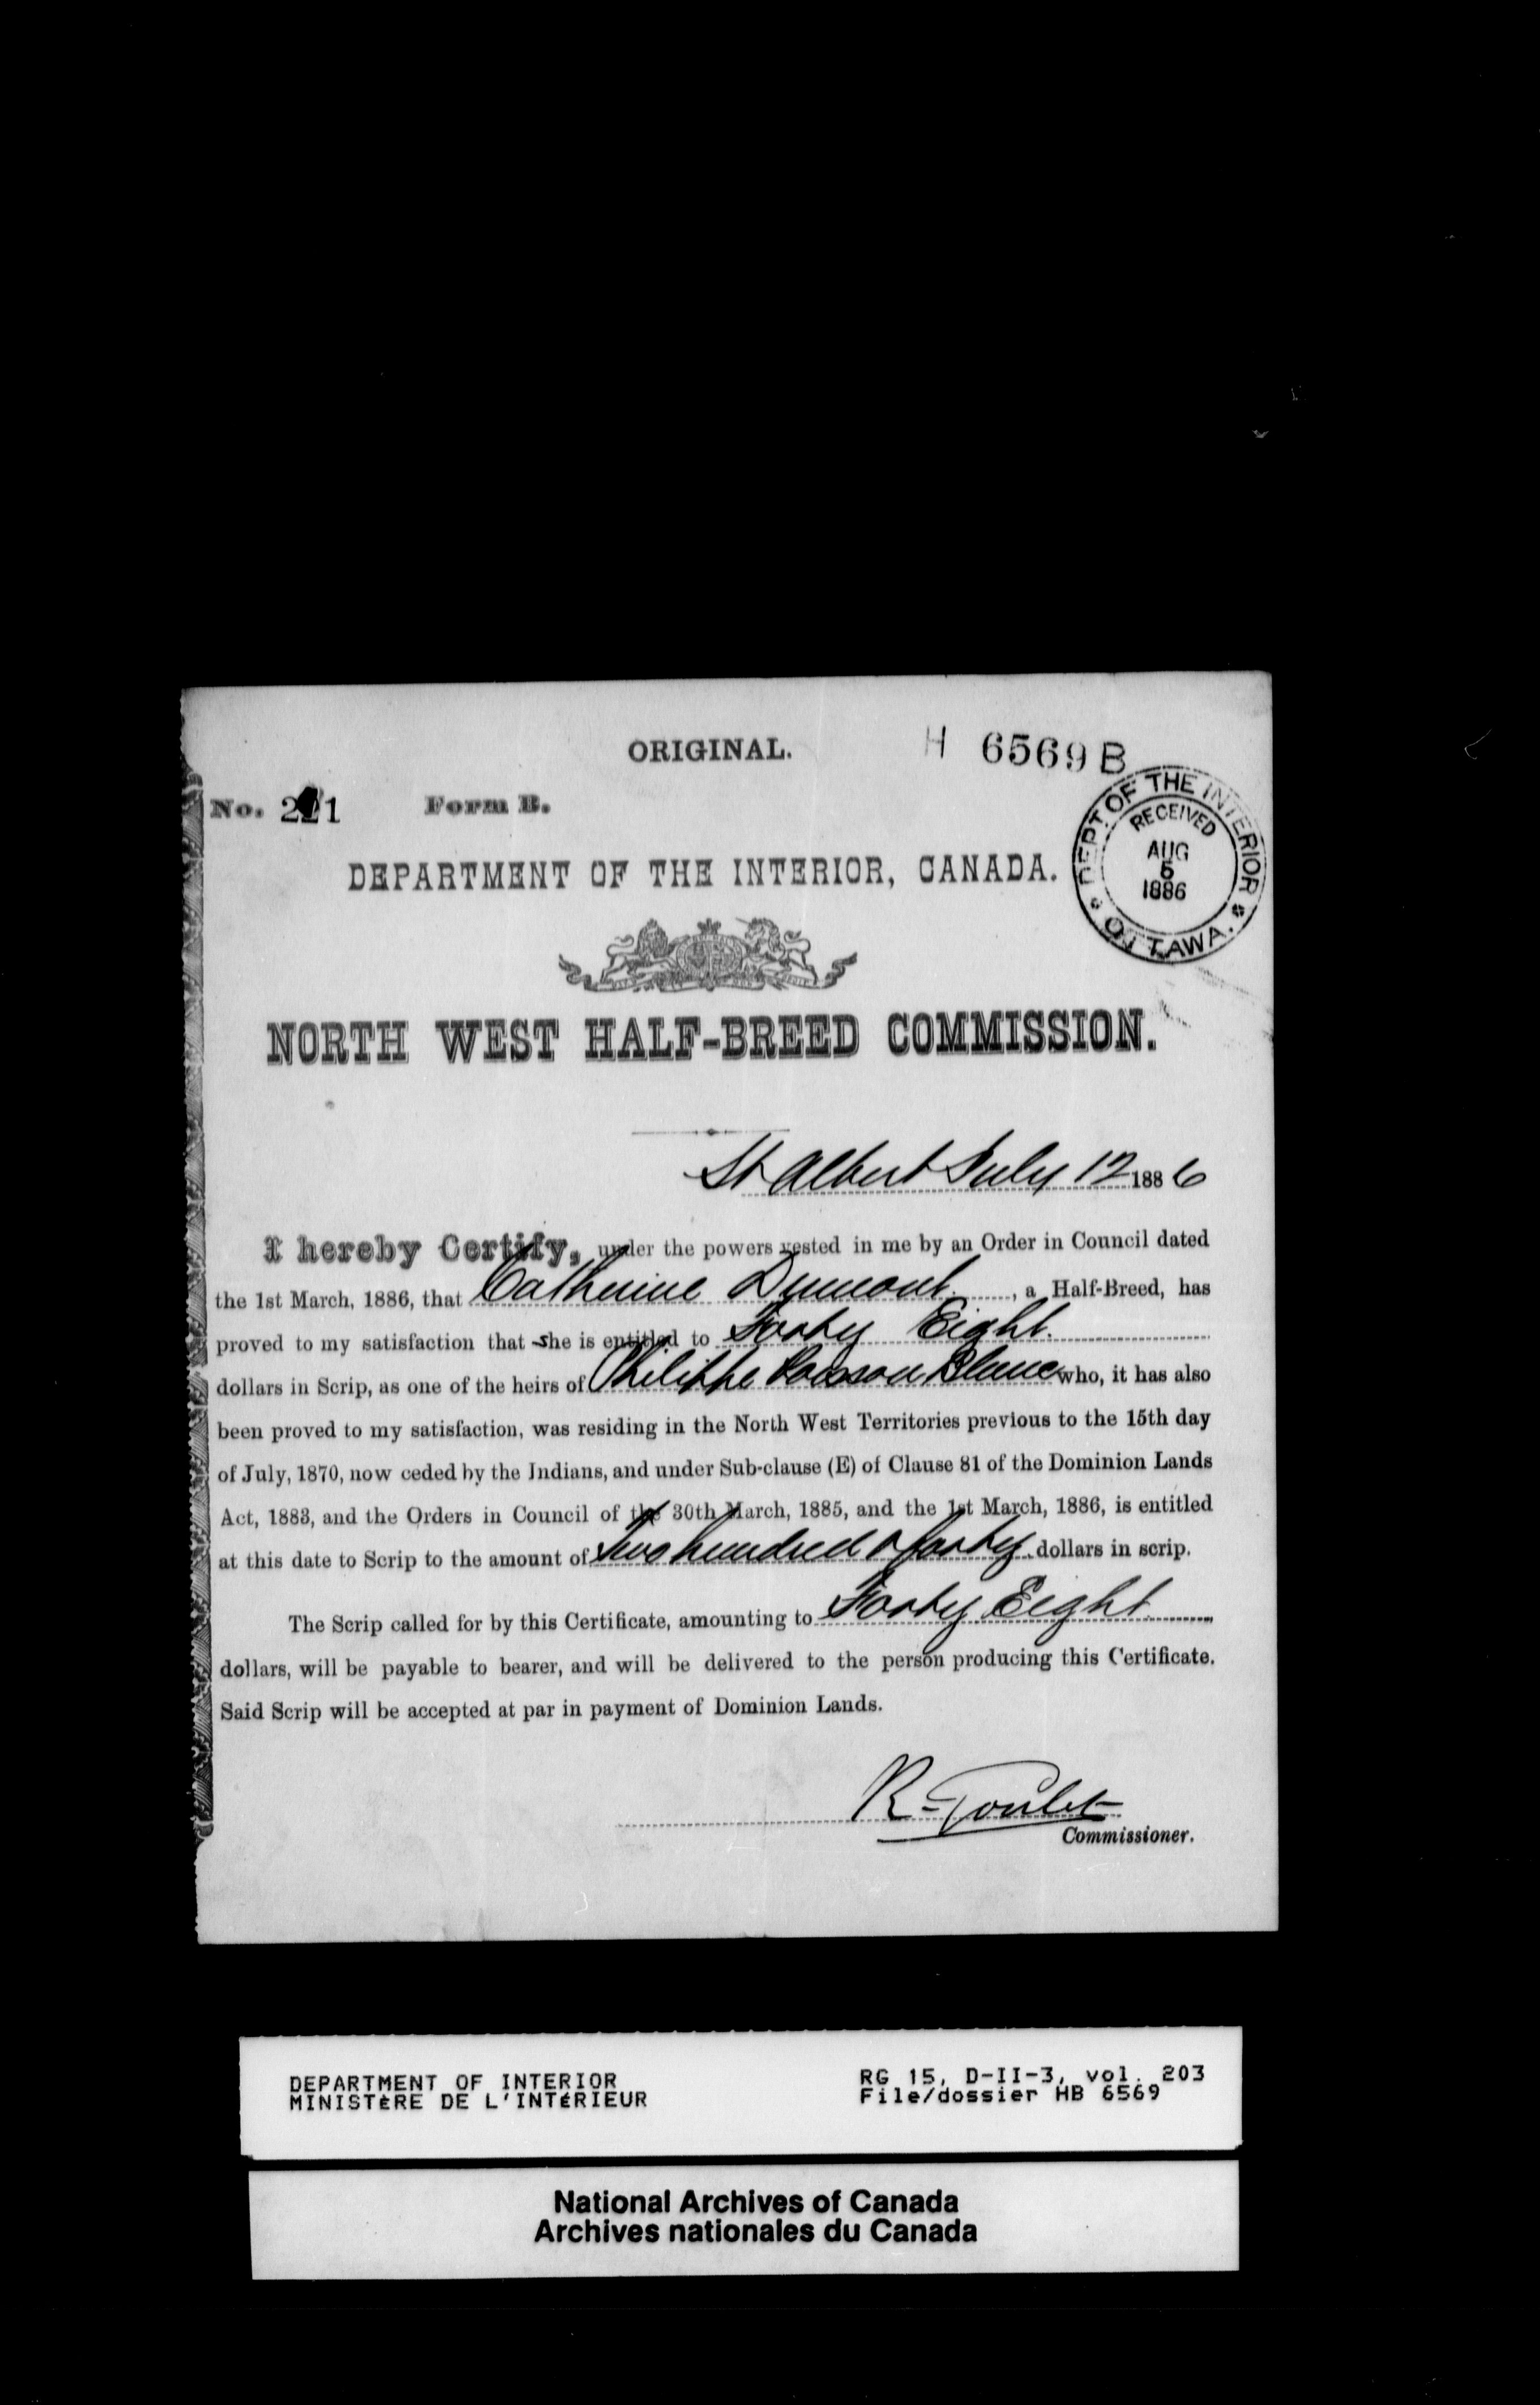 ORIGINAL.
H 6569 B
No. 211 Form B.
DEPT. OF THE INTERIOR
RECEIVED
AUG
5
1886
OTTAWA.
DEPARTMENT OF THE INTERIOR, CANADA.
NORTH WEST HALF-BREED COMMISSION.
St Albert July 12 1886
I hereby Certify, under the powers vested in me by an Order in Council dated
the 1st March, 1886, that Catherine Dumont, a Half-Breed, has
proved to my satisfaction that she is entitled to Forty Eight
dollars in Scrip, as one of the heirs of Philippe Poisson Blanc who, it has also
been proved to my satisfaction, was residing in the North West Territories previous to the 15th day
of July, 1870, now ceded by the Indians, and under Sub-clause (E) of Clause 81 of the Dominion Lands
Act, 1883, and the Orders in Council of the 30th March, 1885, and the 1st March, 1886, is entitled
at this date to Scrip to the amount of Two hundred & forty dollars in scrip.
The Scrip called for by this Certificate, amounting to Forty Eight
dollars, will be payable to bearer, and will be delivered to the person producing this Certificate.
Said Scrip will be accepted at par in payment of Dominion Lands.
R. Goulet
Commissioner.
DEPARTMENT OF INTERIOR
MINISTÈRE DE L'INTÉRIEUR
RG 15, D-II-3, vol. 203
File/dossier HB 6569
National Archives of Canada
Archives nationales du Canada